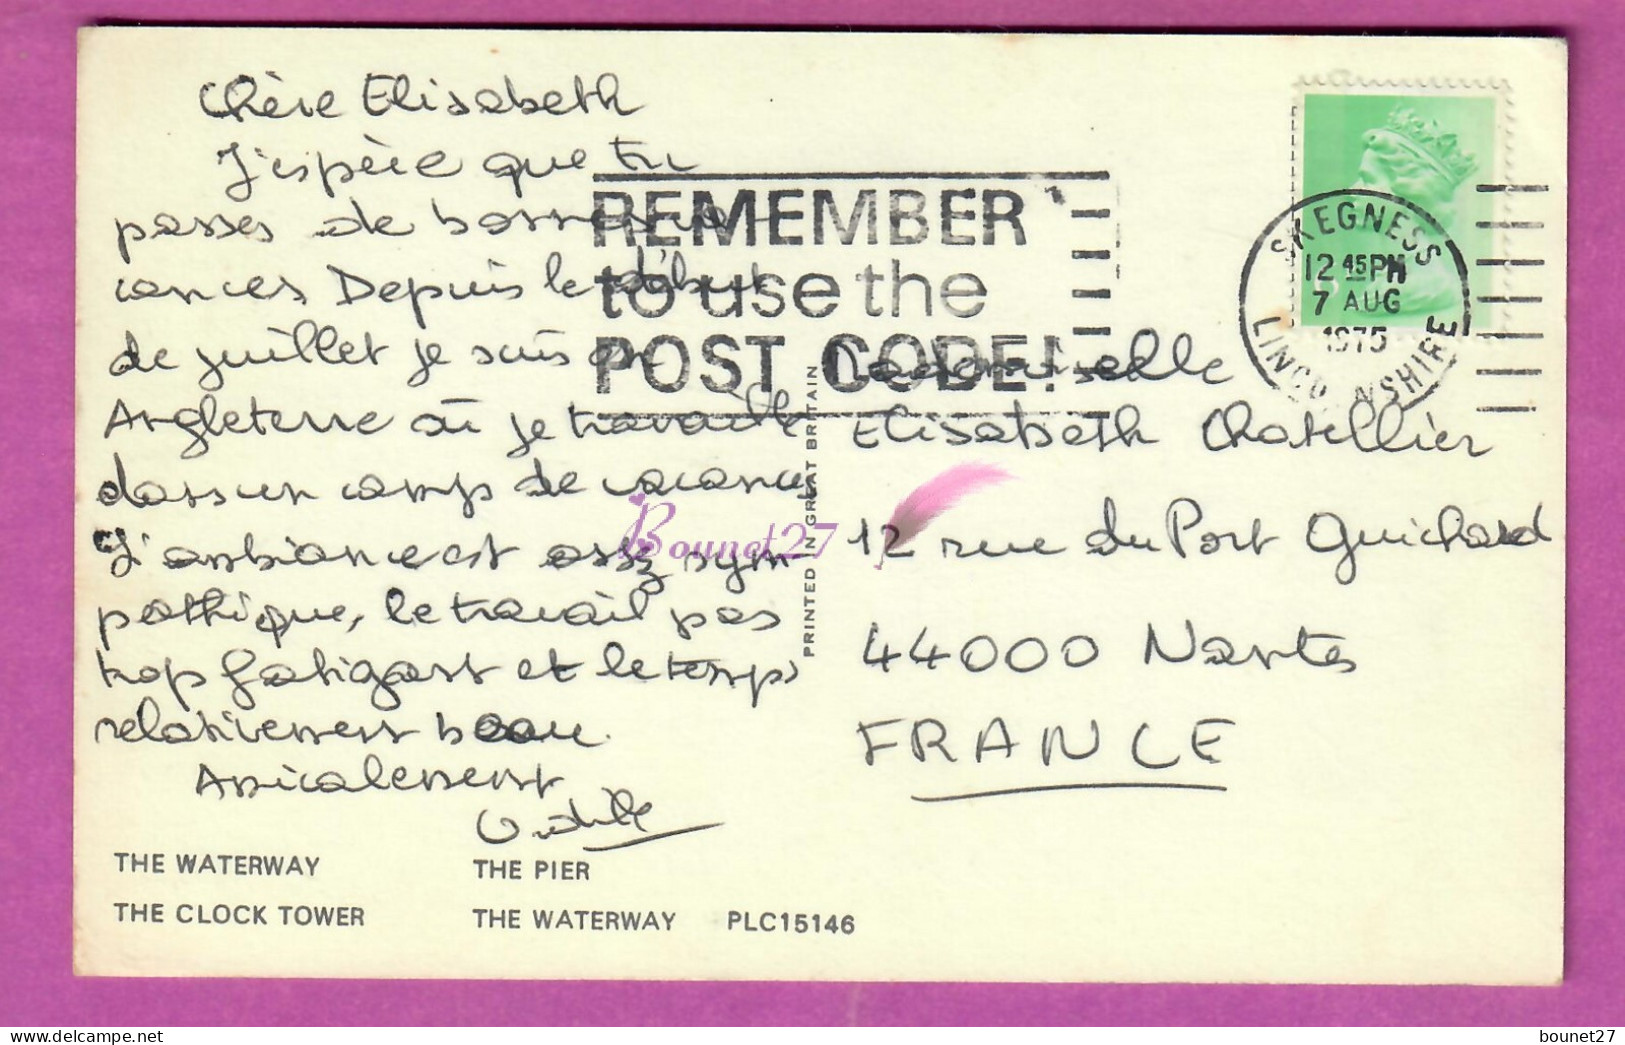 Chère Elisabeth
J'espère que tu
passes de bonnes va-
cances Depuis le début
de juillet je suis en
Angleterre où je travaille
dans un camp de vacances
L'ambiance est assez sym-
pathique, le travail pas
trop fatigant et le temps
relativement beau.
Amicalement
Odile
THE WATERWAY
THE PIER
THE CLOCK TOWER
THE WATERWAY PLC15146
REMEMBER
to use the
POST CODE!
PRINTED IN GREAT BRITAIN
SKEGNESS
12 45PM
7 AUG
1975
LINCOLNSHIRE
Mademoiselle
Elisabeth Chatellier
12 rue du Port Guichard
44000 Nantes
FRANCE
Bounet27
delcampe.net
bounet27